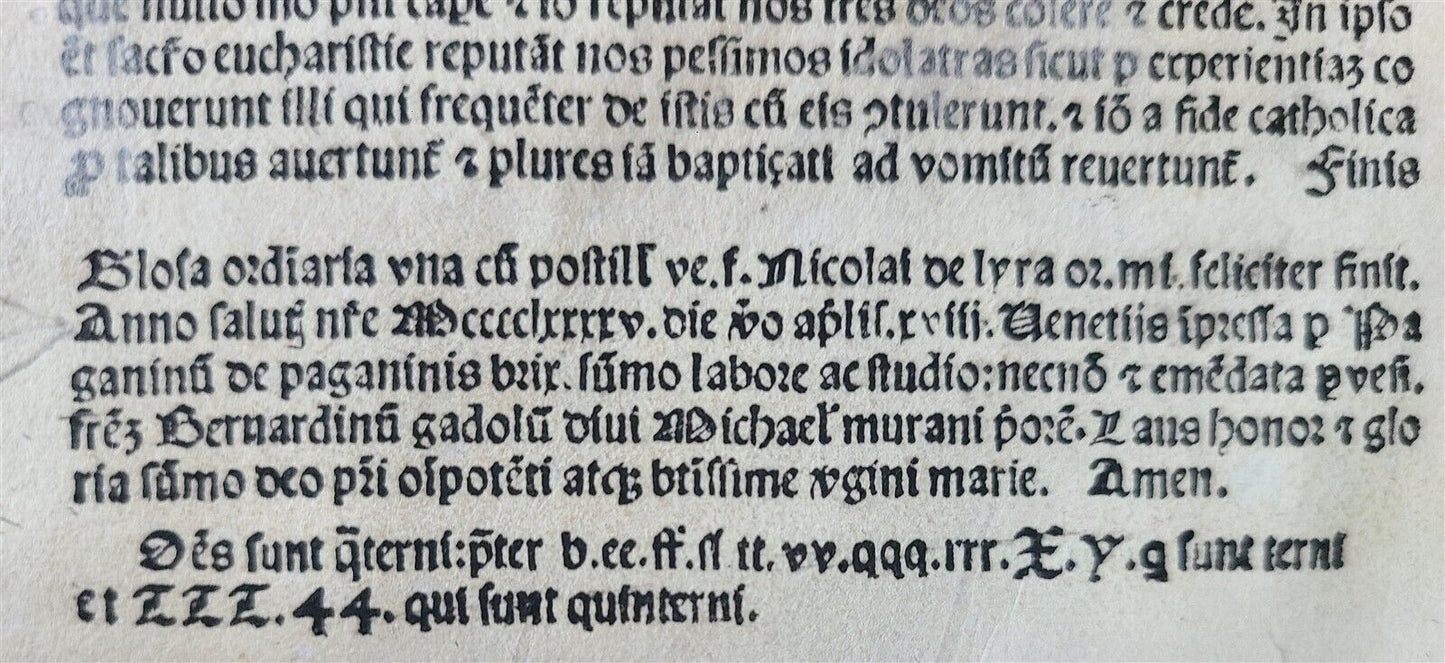 que nullo mō pn̄t cape ⁊ iō reputāt nos tres deos colere ⁊ crede. In ipso
ēt sacr̄o eucharistie reputāt nos pessimos idolatras sicut ꝑ experientiaꝫ co
gnouerunt illi qui frequēter de istis cū eis ꝯtulerunt. ⁊ iō a fide catholica
ꝓ talibus auertunt̄ ⁊ plures iā baptiçati ad vomitū reuertunt̄. Finis
Glosa ordīaria vna cū postill̄ ve. f. Nicolai de lyra or. mi. feliciter finit.
Anno saluṫ nr̄e Mcccclxxxxv. die v̊o aṗlis. xviii. Uenetiis īpressa ꝑ Pa
ganinū de paganinis brix. sūmo labore ac studio: necnō ⁊ emēdata ꝑ ven̄.
frēꝫ Bernardinū gadolū diui Michael̄ murani p̄orē. Laus honor ⁊ glo
ria sūmo deo pr̄i oīpotēti atqꝫ btīssime v̊gini marie. Amen.
Oēs sunt q̄terni: p̄ter b. ee. ff. sſ tt. vv. qqq. rrr. X. Y. g sunt terni
et ZZZ. 44. qui sunt quinterni.